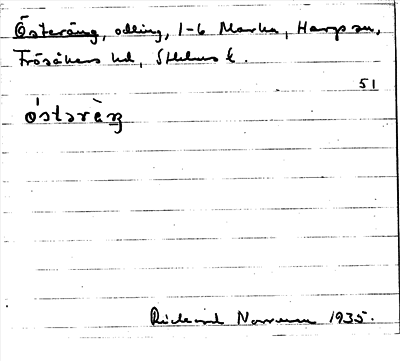 Österäng, odling, 1-6 Marka, Hargs sn,
Frösåkers hd, Sthlms l.
51
Rickard Norrman 1935.